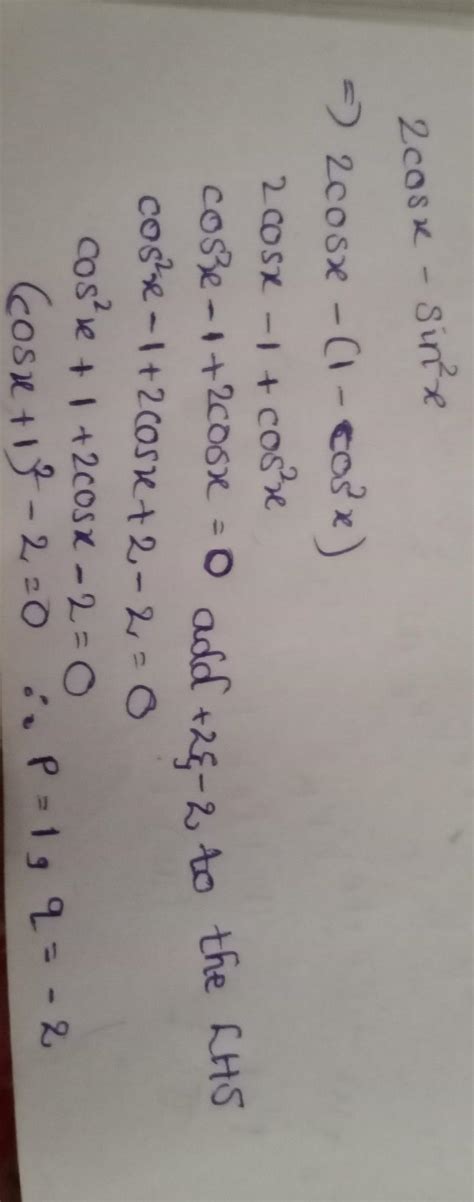 2cosx - sin²x
=) 2cosx - (1 - cos²x)
2cosx - 1 + cos²x
cos²x - 1 + 2cosx = 0 add +2 & -2 to the LHS
cos²x - 1 + 2cosx + 2 - 2 = 0
cos²x + 1 + 2cosx - 2 = 0
(cosx + 1)² - 2 = 0 ∴ P = 1, q = -2